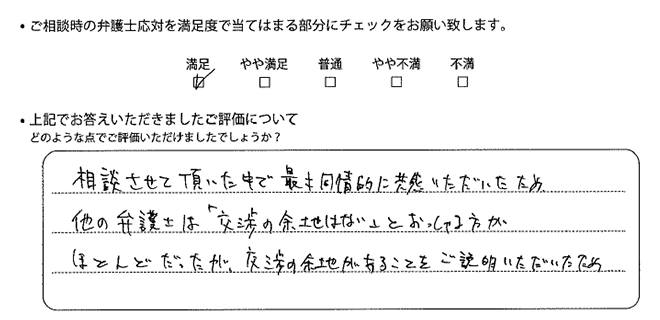 ・ご相談時の弁護士応対を満足度で当てはまる部分にチェックをお願い致します。
満足 やや満足 普通 やや不満 不満
・上記でお答えいただきましたご評価について
どのような点でご評価いただけましたでしょうか？
相談させて頂いた中で最も同情的に共感いただいたため
他の弁護士は「交渉の余地はない」とおっしゃる方が
ほとんどだったが、交渉の余地があることをご説明いただいたため